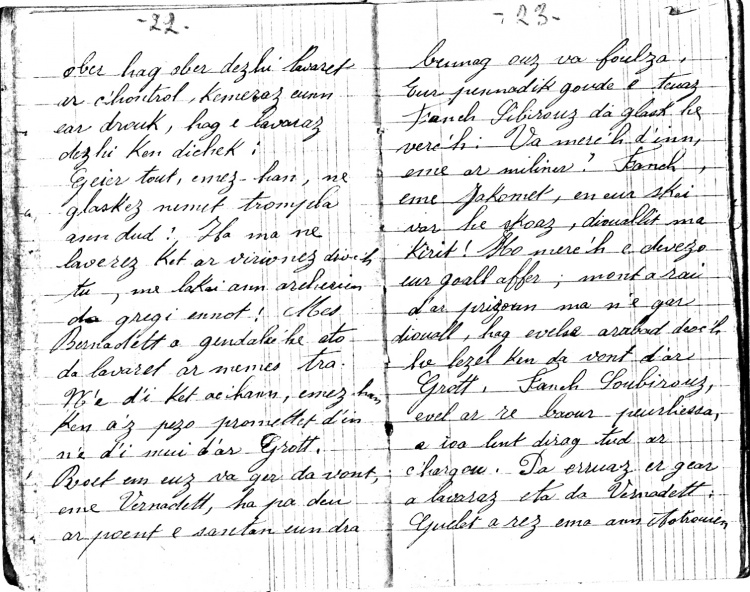 -22-
ober hag ober dezhi lavaret
ar c'hontrol, kemeraz eunn
ear drouk, hag e lavaraz
dezhi ken dichek:
Geier tout, emez-han, ne
glaskez nemet trompla
ann dud! Ha ma ne
laverez ket ar virionez diouc'h
tu, me lakai ann archerien
da gregi ennot! Mes
Bernadett a gendalc'he ato
da lavaret ar memes tra.
N'e d'i ket ac'hann, emez han
ken a'z pezo promettet d'in
n'e d'i mui d'ar Grott.
Roet em euz va ger da vont,
eme Vernadett, ha pa deu
ar poent e santan eun dra
-23-
bennag ouz va foulza.
Eur pennadik goude e teuaz
Fanch Soubirouz da glask he
verc'h: Va merc'h d'inn,
eme ar miliner? Fanch,
eme Jakomet, en eur skei
war he skoaz, diouallit ma
kirit! Ho merc'h e devezo
eur goall affer; mont a rai
d'ar prizoun ma n'e gar
diouall, hag evelse arabad deoc'h
he lezel ken da vont d'ar
Grott. Fanch Soubirouz,
evel ar re baour peurliessa,
a ioa lent dirag tud ar
c'hargou. Da erruaz er gear
a lavaraz eta da Vernadett:
Guelet a rez ema ann Aotrouien